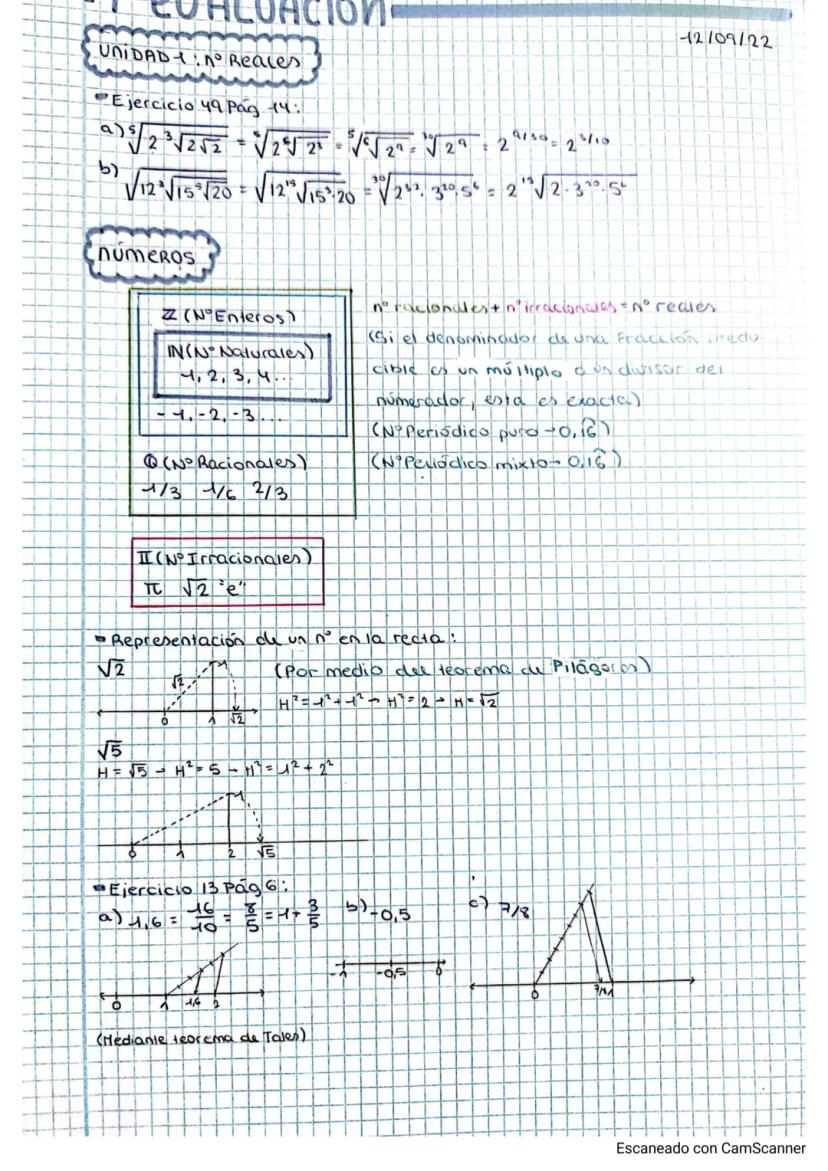 EVALUACIÓN
12/09/22
UNIDAD 1: nº Reales
Ejercicio 49 Pág 14:
a) ⁵√2 ³√2√2 = ⁵√2 ⁶√2³ = ⁵√⁶√2⁹ = ³⁰√2⁹ = 2^9/30 = 2^3/10
b)
√12 ³√15 ⁵√20 = √12 ¹⁵√15⁵·20 = ³⁰√2³²·3²⁰·5⁶ = 2 ¹⁵√2·3²⁰·5⁶
NÚMEROS
Z (Nº Enteros)
IN (Nº Naturales)
1, 2, 3, 4...
-1, -2, -3...
Q (Nº Racionales)
1/3 1/6 2/3
nº racionales + nº irracionales = nº reales
(Si el denominador de una Fracción irredu-
cible es un múltiplo o un divisor del
númerador, esta es exacta)
(Nº Periódico puro → 0,1̂6̂)
(Nº Periódico mixto → 0,16̂)
II (Nº Irracionales)
π √2 "e"
Representación de un nº en la recta:
√2 (Por medio del teorema de Pitágoras)
√2
H² = 1² + 1² → H² = 2 → H = √2
0 1 √2
√5
H = √5 → H² = 5 → H² = 1² + 2²
0 1 2 √5
Ejercicio 13 Pág 6:
a) 1,6 = 16/10 = 8/5 = 1 + 3/5 b) -0,5 c) 7/8
0 1 1,6 2
-1 -0,5 0
0 7/8 1
(Mediante teorema de Tales)
Escaneado con CamScanner